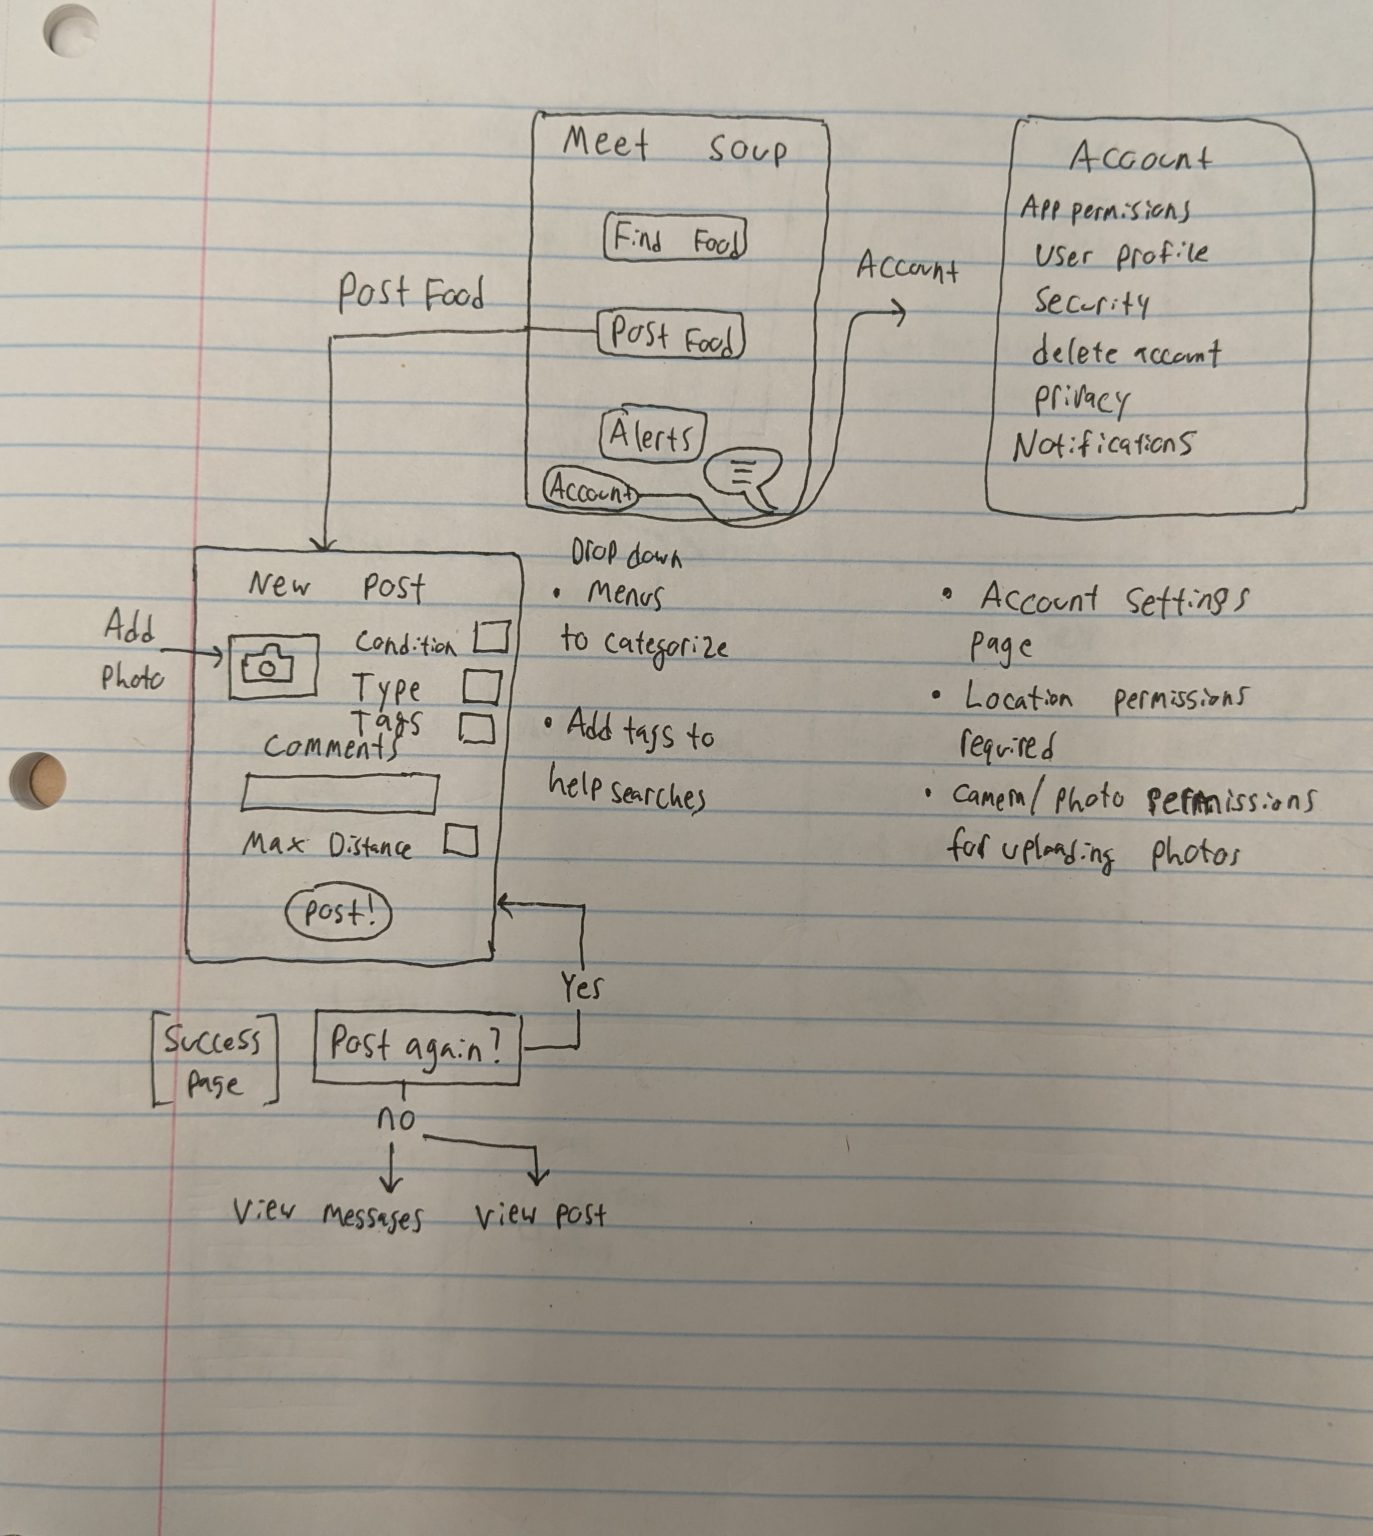 Meet Soup
Find Food
Post Food
Alerts
Account
Post Food
Account
Account
App permisions
User profile
Security
delete account
privacy
Notifications
New Post
Add
Photo
Condition
Type
Tags
Comments
Max Distance
Post!
Drop down
• Menus
to categorize
• Add tags to
help searches
• Account Settings
page
• Location permissions
required
• Camera/photo permissions
for uploading photos
Yes
Success
Page
Post again?
no
View messages
View post